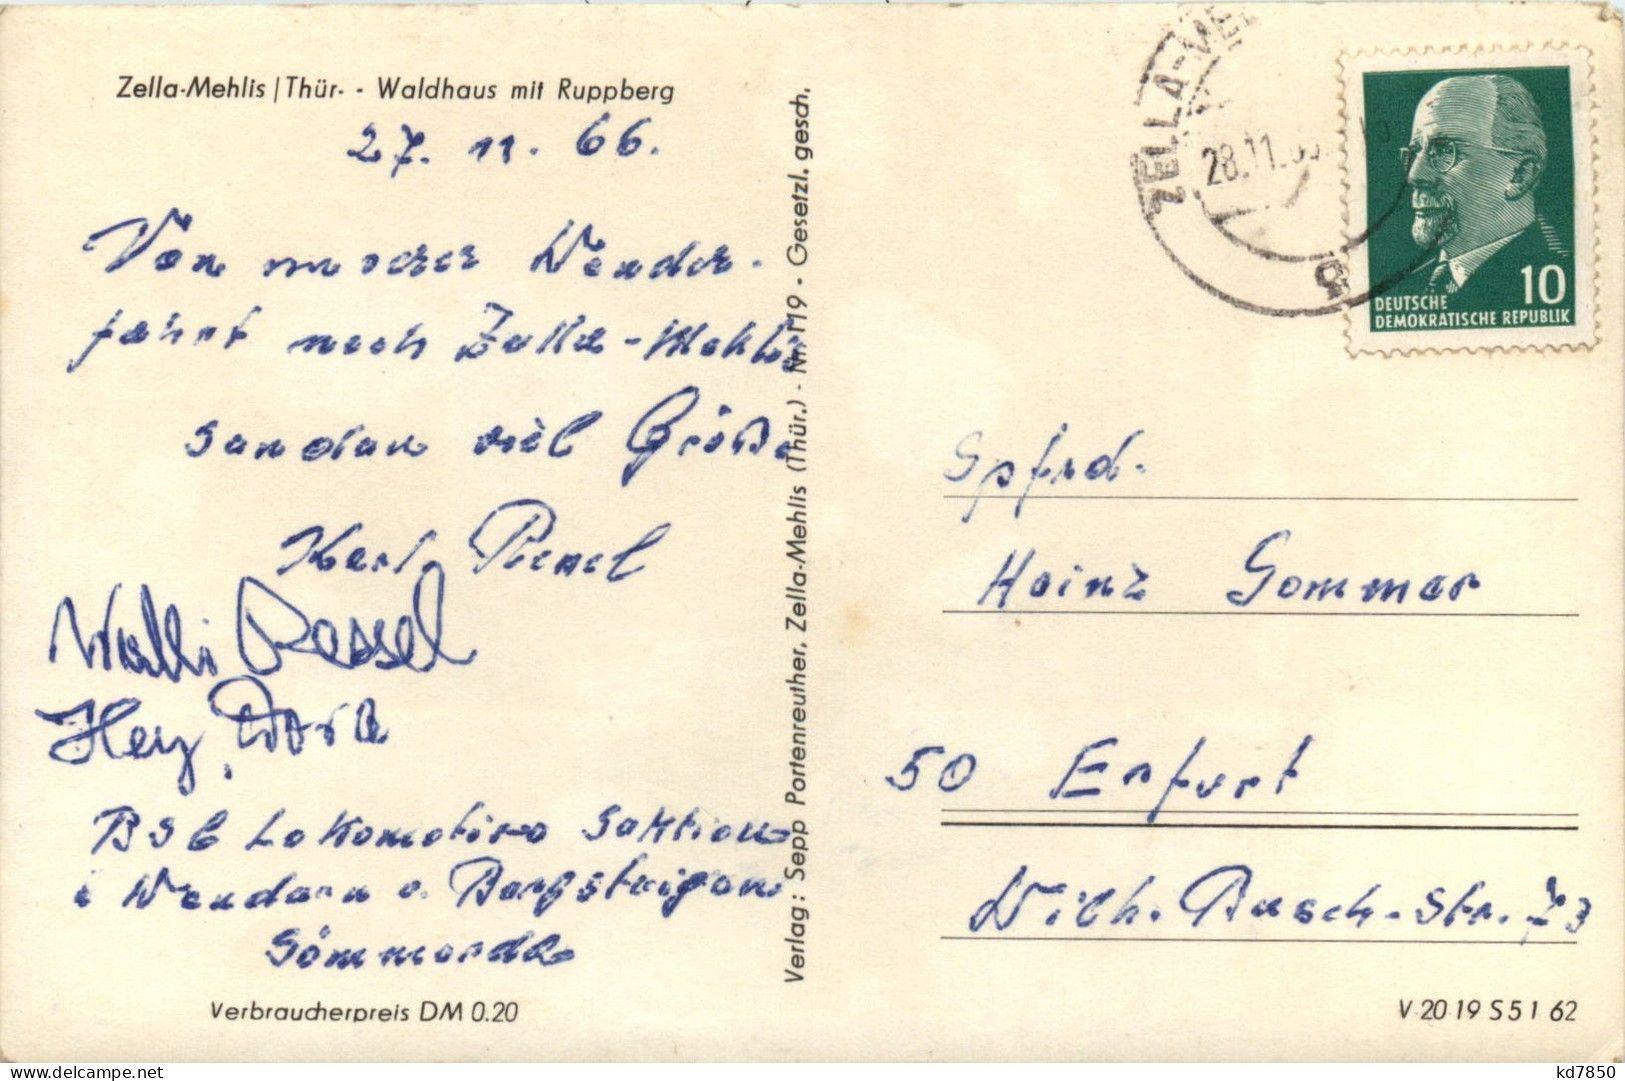 Zella-Mehlis / Thür. - Waldhaus mit Ruppberg
27. 11. 66.
Von unserer Wander-
fahrt nach Zella-Mehlis
senden viel Grüße
Karl
Walli
BSG Lokomotive Sektion
Wandern u. Bergsteigen
Sömmerda
Verbraucherpreis DM 0.20
Verlag: Sepp Portenreuther, Zella-Mehlis (Thür.) · Nr. 119 · Gesetzl. gesch.
ZELLA-ME
28.11.
10
DEUTSCHE
DEMOKRATISCHE REPUBLIK
Spfrd.
Heinz Sommer
50 Erfurt
Wilh. Busch-Str. 73
V 20 19 S 5 1 62
www.delcampe.net
kd7850